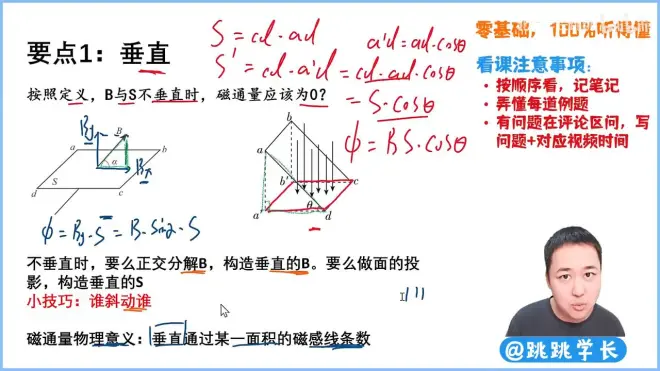 要点1：垂直
S = cd·ad
a'd = ad·cosθ
S' = cd·a'd = cd·ad·cosθ
= S·cosθ
Φ = BS·cosθ
零基础，100%听得懂
看课注意事项：
• 按顺序看，记笔记
• 弄懂每道例题
• 有问题在评论区问，写
问题+对应视频时间
按照定义，B与S不垂直时，磁通量应该为0？
By B
a b
α Bx
S
d c
b
a
b' c
a' θ d
Φ = By·S = B·sinα·S
不垂直时，要么正交分解B，构造垂直的B。要么做面的投
影，构造垂直的S
小技巧：谁斜动谁
磁通量物理意义：垂直通过某一面积的磁感线条数
@跳跳学长